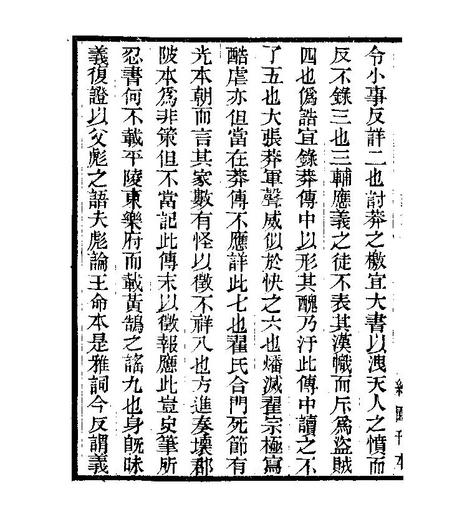 令小事反詳二也討莽之檄宜大書以洩天人之憤而
反不錄三也三輔應義之徒不表其漢幟而斥爲盜賊
四也僞誥宜錄莽傳中以形其醜乃汙此傳中讀之不
了五也大張莽軍聲威似於快之六也燔滅翟宗極寫
酷虐亦但當在莽傳不應詳此七也翟氏合門死節有
光本朝而言其家數有怪以徵不祥八也方進奏壞郡
陂本爲非策但不當記此傳末以徵報應此豈史筆所
忍書何不載平陵東樂府而載黃鵠之謠九也身既昧
義復證以父彪之語夫彪論王命本是雅詞今反謂義